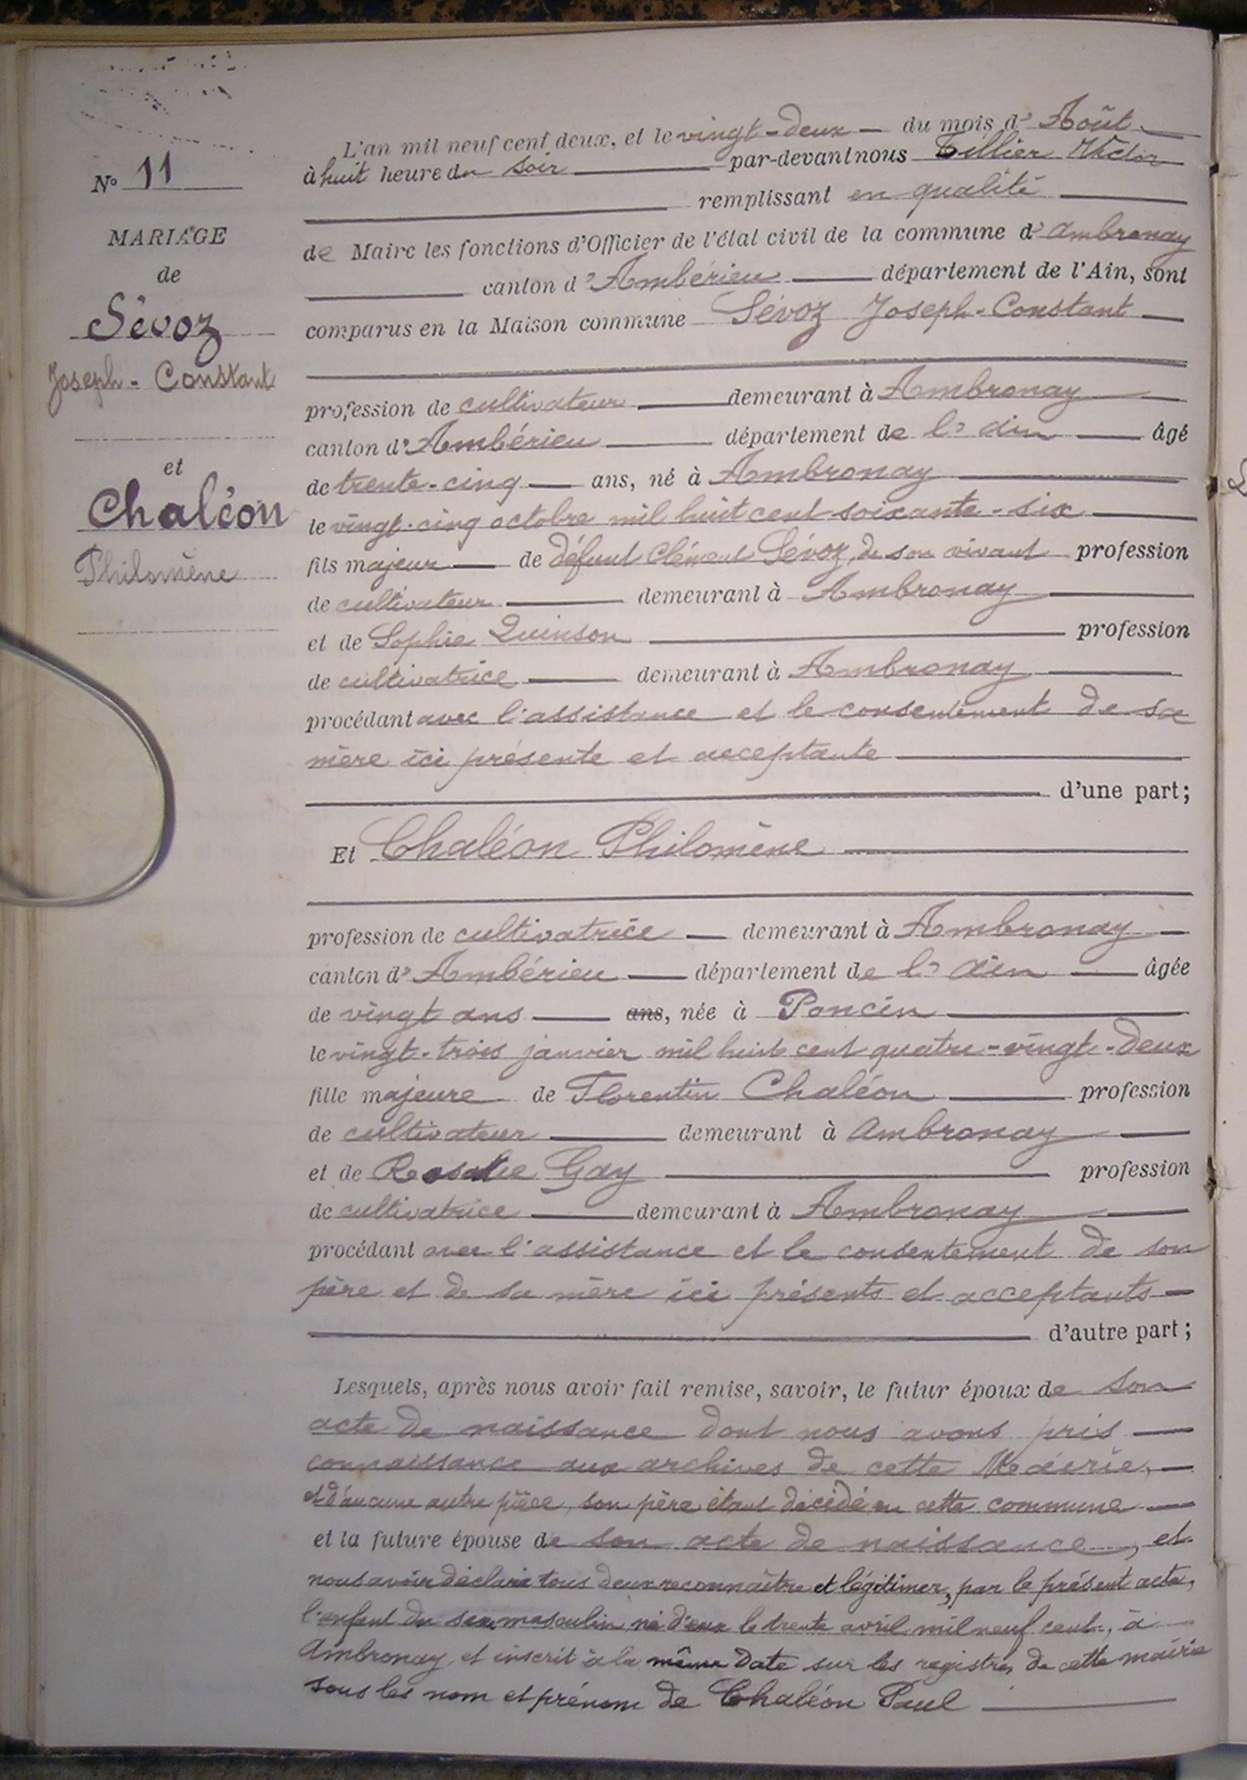 N° 11
MARIAGE
de
Sévoz
Joseph-Constant
et
Chaléon
Philomène
L'an mil neuf cent deux, et le vingt-deux du mois d' Août
à huit heure du soir par-devant nous Tillier Victor
remplissant en qualité
de Maire les fonctions d'Officier de l'état civil de la commune d' Ambronay
canton d' Ambérieu département de l'Ain, sont
comparus en la Maison commune Sévoz Joseph-Constant
profession de cultivateur demeurant à Ambronay
canton d' Ambérieu département de l' ain âgé
de trente-cinq ans, né à Ambronay
le vingt-cinq octobre mil huit cent soixante-six
fils majeur de défunt Clément Sévoz, de son vivant profession
de cultivateur demeurant à Ambronay
et de Sophie Quinson profession
de cultivatrice demeurant à Ambronay
procédant avec l'assistance et le consentement de sa
mère ici présente et acceptante
d'une part;
Et Chaléon Philomène
profession de cultivatrice demeurant à Ambronay
canton d' Ambérieu département de l' ain âgée
de vingt ans ans, née à Poncin
le vingt-trois janvier mil huit cent quatre-vingt-deux
fille majeure de Florentin Chaléon profession
de cultivateur demeurant à Ambronay
et de Rosalie Gay profession
de cultivatrice demeurant à Ambronay
procédant avec l'assistance et le consentement de son
père et de sa mère ici présents et acceptants
d'autre part;
Lesquels, après nous avoir fait remise, savoir, le futur époux de son
acte de naissance dont nous avons pris
connaissance aux archives de cette Mairie,
et d'aucune autre pièce, son père étant décédé en cette commune
et la future épouse de son acte de naissance, et
nous avoir déclaré tous deux reconnaître et légitimer, par le présent acte,
l'enfant du sexe masculin né d'eux le trente avril mil neuf cent, à
Ambronay, et inscrit à la même date sur les registres de cette mairie
sous les nom et prénom de Chaléon Paul